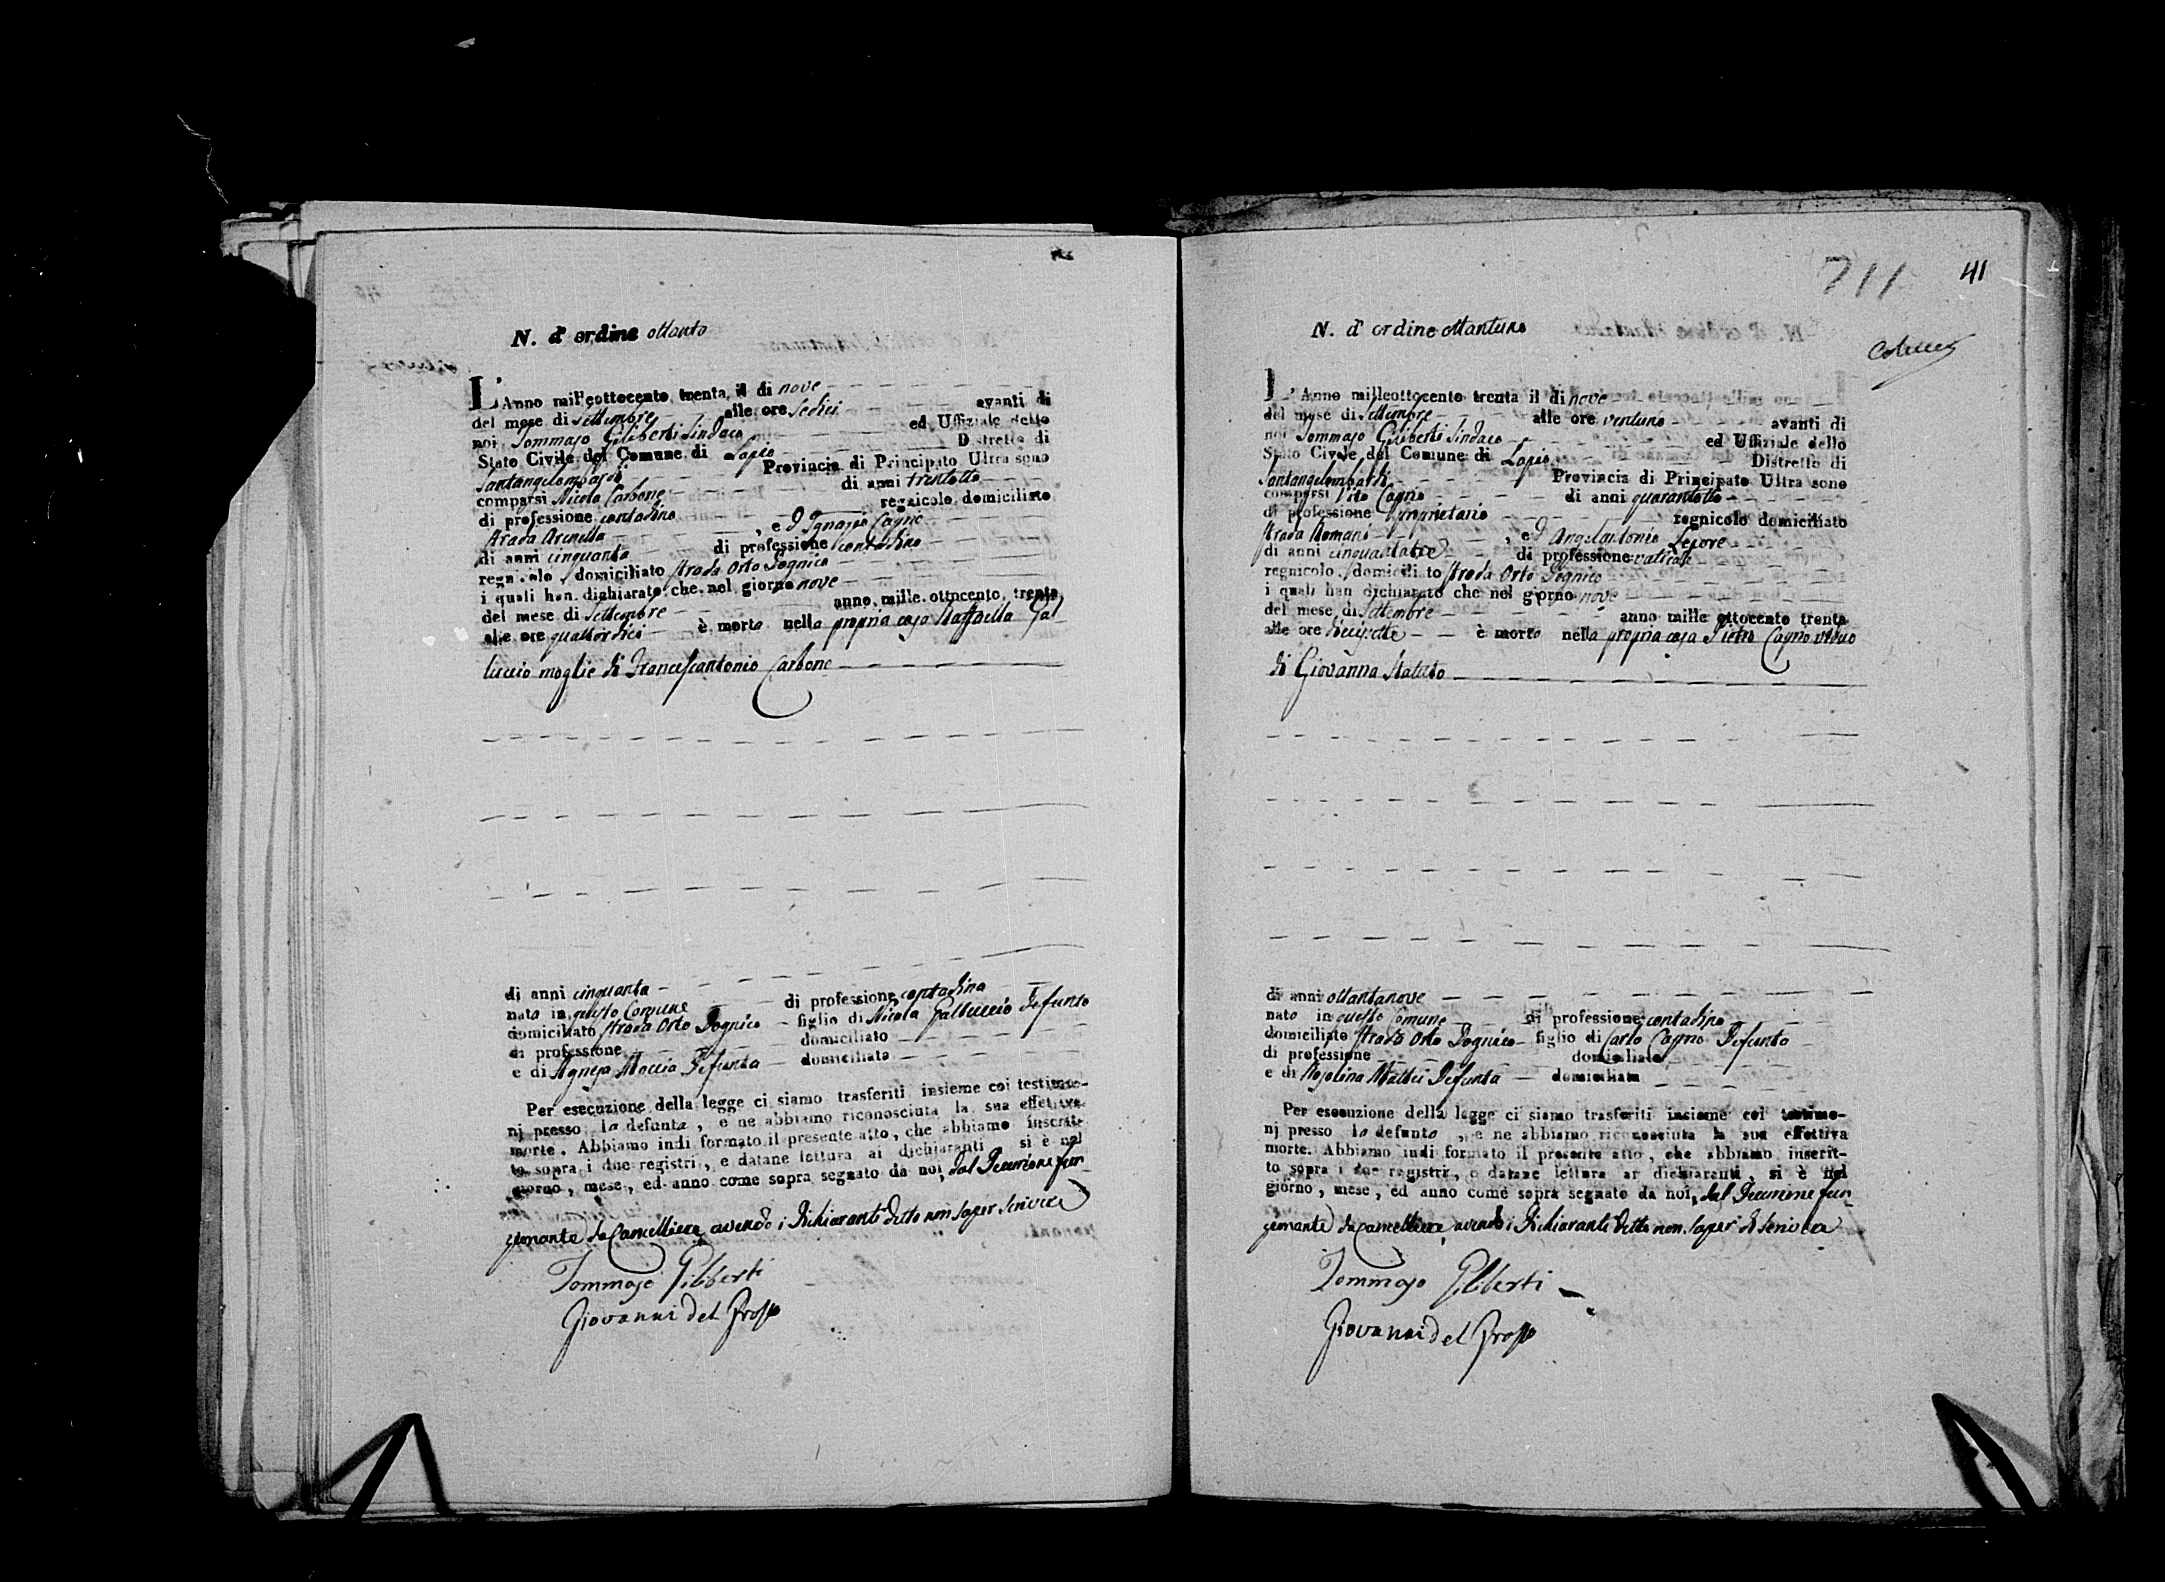 N. d' ordine ottanta
L' Anno milleottocento trenta, il di nove
del mese di Settembre alle ore Sedici avanti di
noi Tommaso Giliberti Sindaco ed Uffiziale dello
Stato Civile del Comune di Lapio Distretto di
Santangelombardi Provincia di Principato Ultra sono
comparsi Nicola Carbone di anni trentotto
di professione contadino regnicolo domiciliato
strada Arenella , e d Ignazio Cagno
di anni cinquanta di professione contadino
regnicolo domiciliato strada Orto Dognico
i quali han dichiarato che nel giorno nove
del mese di Settembre anno mille ottocento trenta
alle ore quattordici è morta nella propria casa Raffaella Gal
luccio moglie di Francescantonio Carbone
di anni cinquanta di professione contadina
nata in questo Comune figlio di Nicola Galluccio defunto
domiciliato strada Orto Dognico domiciliato
di professione
e di Agnesa Maccia defunta domiciliata
Per esecuzione della legge ci siamo trasferiti insieme coi testimo-
nj presso la defunta , e ne abbiamo riconosciuta la sua effettiva
morte. Abbiamo indi formato il presente atto, che abbiamo inscrit-
to sopra i due registri, e datane lettura ai dichiaranti si è nel
giorno, mese, ed anno come sopra segnato da noi, dal Decurione fun
zionante da Cancelliere avendo i dichiaranti detto non saper scrivere
Tommaso Giliberti
Giovanni del Grosso
711 41
N. d' ordine ottantuno
L' Anno milleottocento trenta il di nove
del mese di Settembre alle ore ventuno avanti di
noi Tommaso Giliberti Sindaco ed Uffiziale dello
Stato Civile del Comune di Lapio Distretto di
Santangelombardi Provincia di Principato Ultra sono
comparsi Vito Cagno di anni quarantotto
di professione Proprietario regnicolo domiciliato
strada Romani , e d Angelantonio Lepore
di anni cinquantatre di professione vaticale
regnicolo domiciliato strada Orto Dognico
i quali han dichiarato che nel giorno nove
del mese di Settembre anno mille ottocento trenta
alle ore diecisette è morto nella propria casa Pietro Cagno vedovo
di Giovanna
di anni ottantanove
nato in questo Comune di professione contadino
domiciliato strada Orto Dognico figlio di Carlo Cagno defunto
di professione domiciliato
e di Rosolina Mattei defunta domiciliata
Per esecuzione della legge ci siamo trasferiti insieme coi testimo-
nj presso lo defunto , e ne abbiamo riconosciuta la sua effettiva
morte. Abbiamo indi formato il presente atto, che abbiamo inscrit-
to sopra i due registri, e datane lettura ai dichiaranti, si è nel
giorno, mese, ed anno come sopra segnato da noi, dal Decurione fun
zionante da Cancelliere avendo i dichiaranti detto non saper di scrivere
Tommaso Giliberti
Giovanni del Grosso